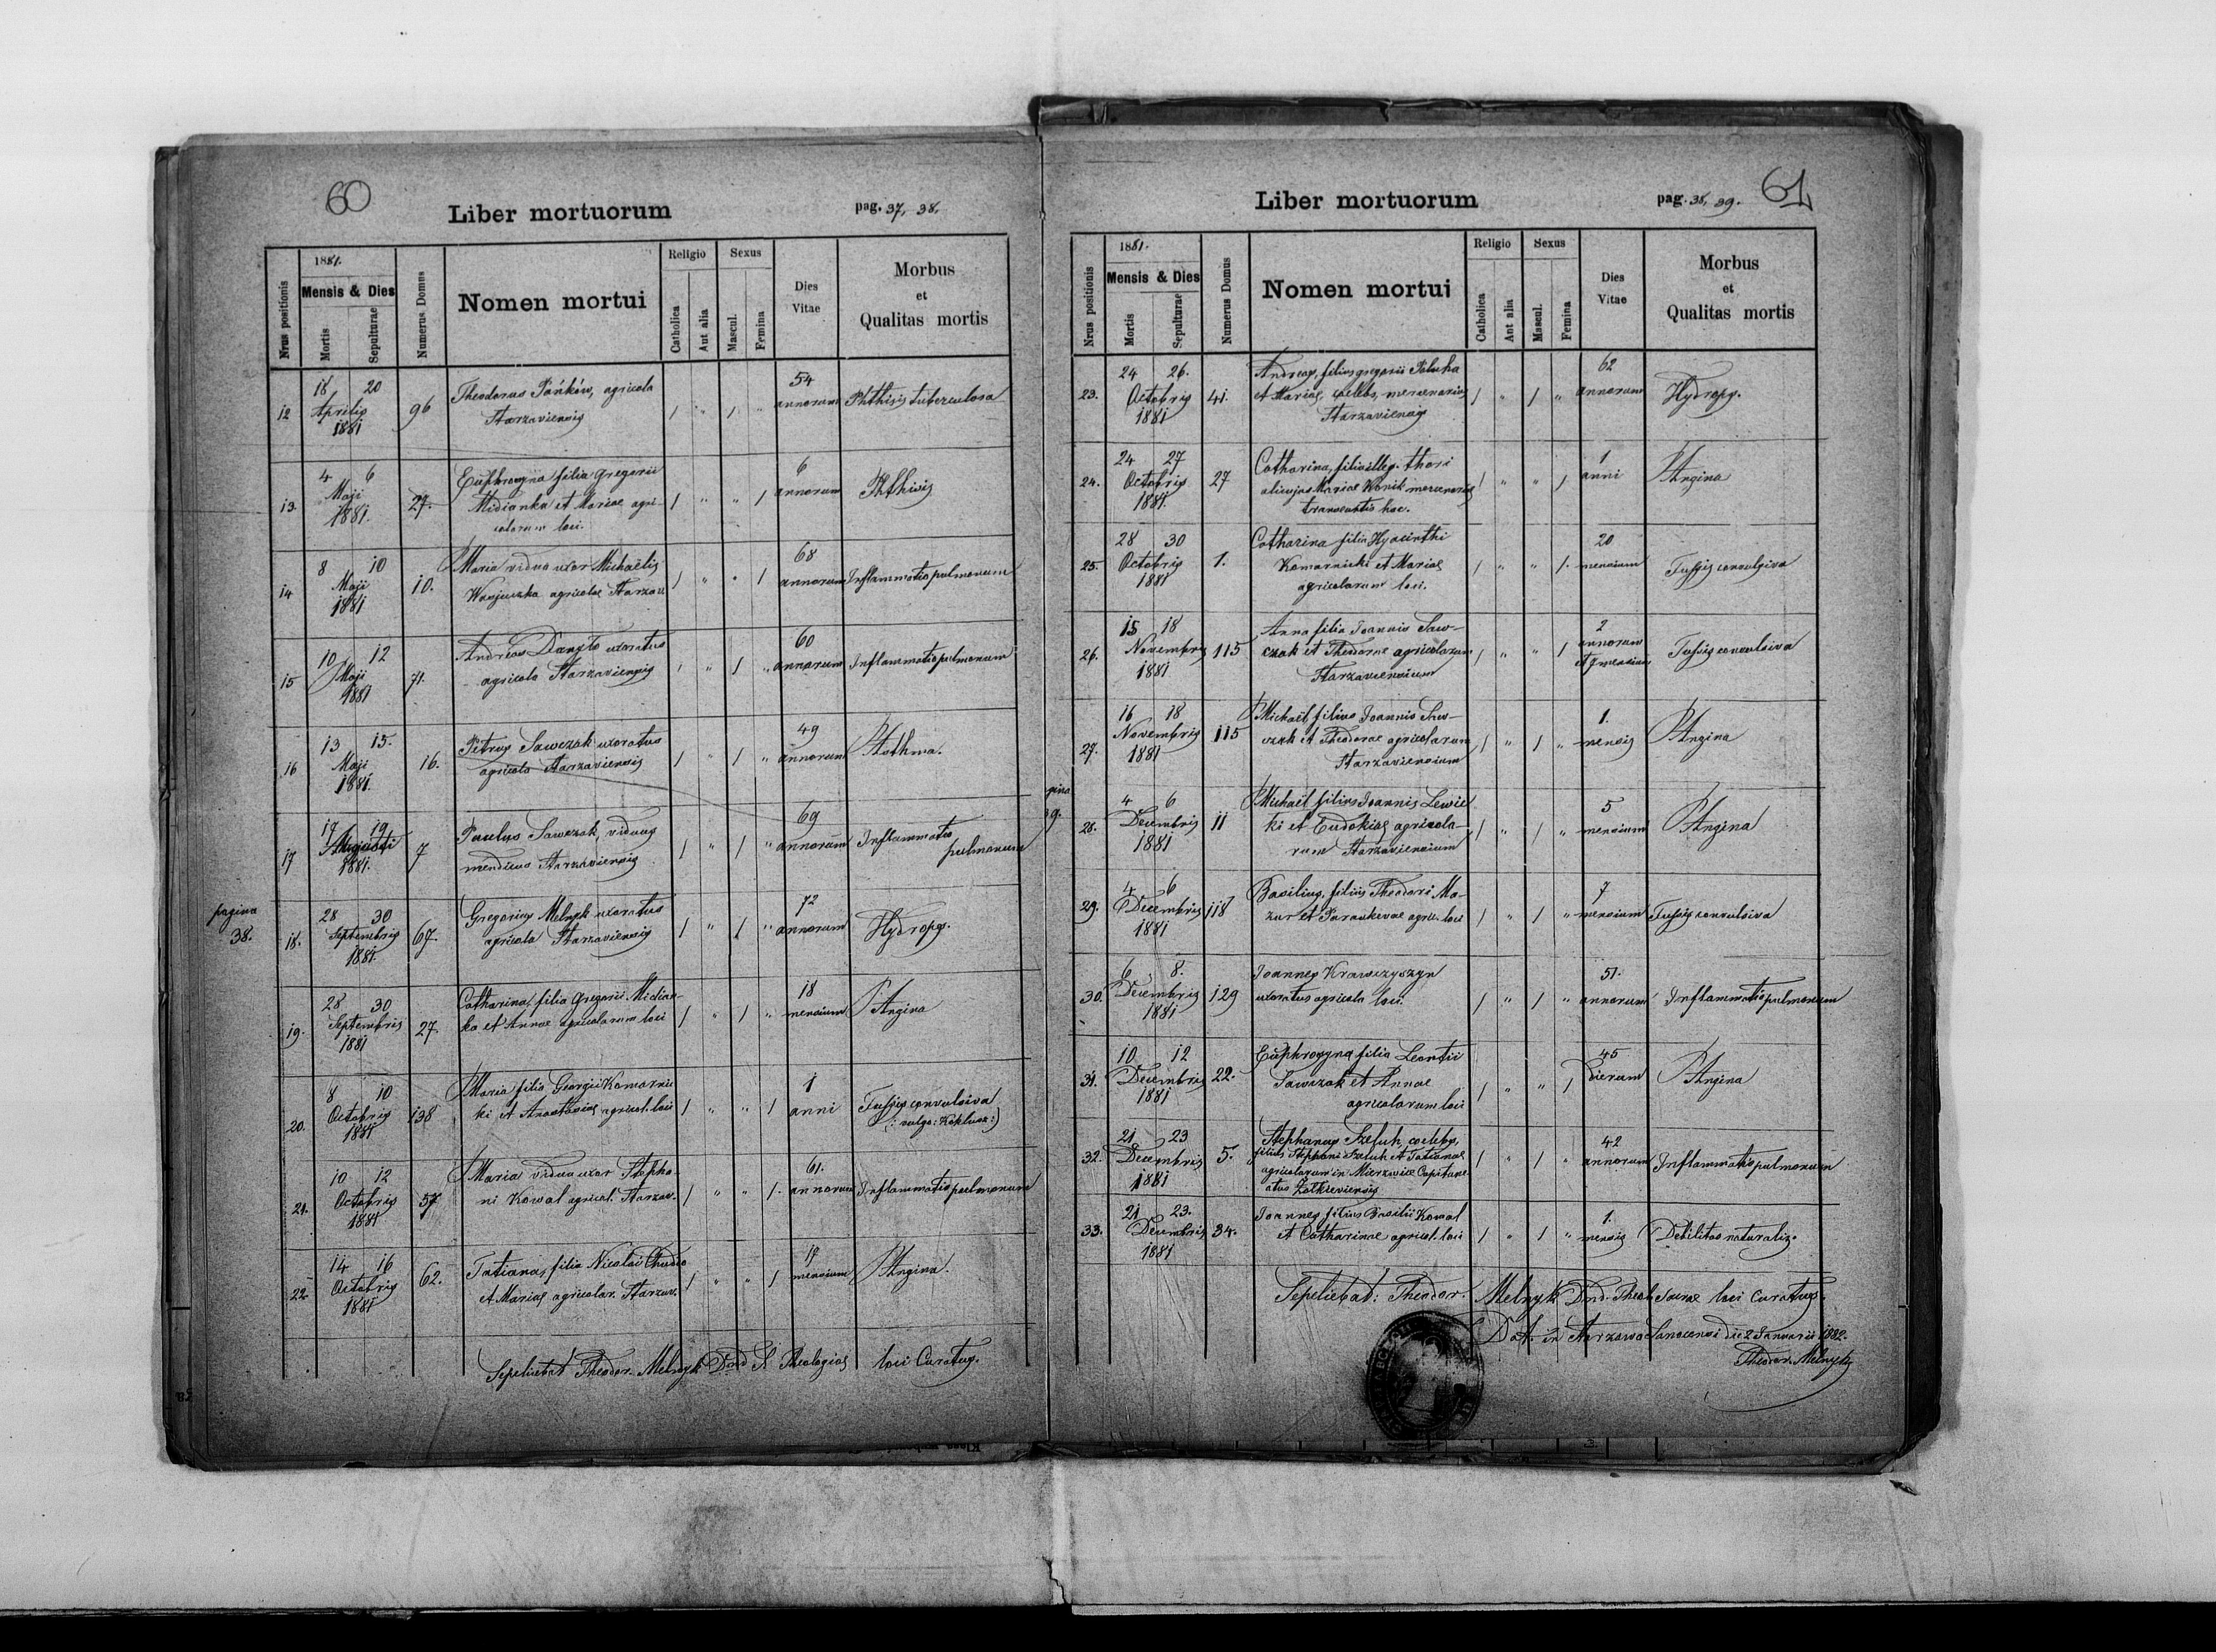 60
Liber mortuorum
pag. 37, 38.
Nrus positionis
1881.
Mensis & Dies
Mortis
Sepulturae
Numerus Domus
Nomen mortui
Religio
Catholica
Aut alia
Sexus
Mascul.
Femina
Dies
Vitae
Morbus
et
Qualitas mortis
12 18 20 Aprilis 1881 96 Theodorus Pańków, agricola 1 " 1 " 54 annorum Phthisis tuberculosa
Starzaviensis
13. 4 6 Maji 1881. 27. Euphrosyna filia Gregorii 1 " " 1 6 annorum Phthisis
Midianka et Mariae agri-
colarum loci.
14 8 10 Maji 1881 10. Maria vidua uxor Michaëlis 1 " " 1 68 annorum Inflammatio pulmonum
agricolae Starzav
15 10 12 Maji 1881 71. Andreas Danyło uxoratus 1 " 1 " 60 annorum Inflammatio pulmonum
agricola Starzaviensis
16 13 15. Maji 1881. 16. Petrus Sawczak uxoratus 1 " 1 " 49 annorum Asthma.
agricola Starzaviensis
17 17 19 Augusti 1881. 7 Paulus Sawczak, viduus 1 " 1 " 69 annorum Inflammatio
mendicus Starzaviensis pulmonum
pagina
38.
18. 28 30 Septembris 1881. 67. Gregorius Melnyk uxoratus 1 " 1 " 72 annorum Hydrops.
agricola Starzaviensis
19. 28 30 Septembris 1881 27. Catharina, filia Gregorii Midian- 1 " 1 " 18 mensium Angina
ka et Annae agricolarum loci
20. 8 10 Octobris 1881 138 Maria filia Georgii Komarnic 1 " " 1 1 anni Tussis convulsiva
ki et Anastasiae agricol. loci (: vulgo: Koklusz :)
21. 10 12 Octobris 1881 57 Maria vidua uxor Stepha- 1 " " 1. 61. annorum Inflammatio pulmonum
ni Kowal agricol. Starzav.
22. 14 16 Octobris 1881 62. Tatiana, filia Nicolai 1 " " 1 mensium Angina.
et Mariae agricolar. Starzav.
Sepeliebat Theodor. Melnyk Dnd S. Theologiae loci Curatus.
61
Liber mortuorum
pag. 38, 39.
Nrus positionis
1881.
Mensis & Dies
Mortis
Sepulturae
Numerus Domus
Nomen mortui
Religio
Catholica
Aut alia
Sexus
Mascul.
Femina
Dies
Vitae
Morbus
et
Qualitas mortis
23. 24 26. Octobris 1881 41. Andreas, filius Gregorii 1 " 1 " 62 annorum Hydrops.
et Mariae, coelebs, mercenarius
Starzaviensis
24. 24 27 Octobris 1881. 27 Catharina, filia illeg. thori 1 " " 1 1 anni Angina
alicujus Mariae Konik mercenariae
transeuntis hac.
25. 28 30 Octobris 1881 1. Catharina filia Hyacinthi 1 " " 1. 20 mensium Tussis convulsiva
Komarnicki et Mariae
agricolarum loci.
26. 15 18 Novembris 1881 115 Anna filia Joannis Saw- 1 " " 1 2 annorum Tussis convulsiva
czak et Theodorae agricolarum
Starzaviensium
27. 16 18 Novembris 1881 115 Michaël, filius Joannis Saw- 1 " 1 " 1. mensis Angina
czak et Theodorae agricolarum
Starzaviensium
28. 4 6 Decembris 1881 11 Michaël filius Joannis Lewic 1 " 1 " 5 mensium Angina
ki et Eudokiae agricola-
rum Starzaviensium
29. 4 6 Decembris 1881 118 Basilius, filius Theodori Ma- 1 " 1 " 7 mensium Tussis convulsiva
zur et Paraskevae agric. loci
30. 6 8. Decembris 1881 129 Joannes Krawczyszyn 1 " 1 " 51. annorum Inflammatio pulmonum
uxoratus agricola loci
31. 10 12 Decembris 1881 22. Euphrosyna filia Leontii 1 " " 1 45 dierum Angina
Sawczak et Annae
agricolarum loci
32. 21 23 Decembris 1881 5. Stephanus Szeluh, coelebs, 1 " 1 " 42 annorum Inflammatio pulmonum
filius Stephani Szeluh et Tatianae
agricolarum in Mierzwica Capitane-
atus Żołkieviensis
33. 21 23. Decembris 1881 34. Joannes filius Basilii Kowal 1 " 1 " 1. mensis Debilitas naturalis.
et Catharinae agricol. loci
Sepeliebat: Theodor. Melnyk Dnd. Theol. Sacrae loci Curatus.
Dat. in Starzawa Sanocensi die 2 Januarii 1882.
Theodor. Melnyk